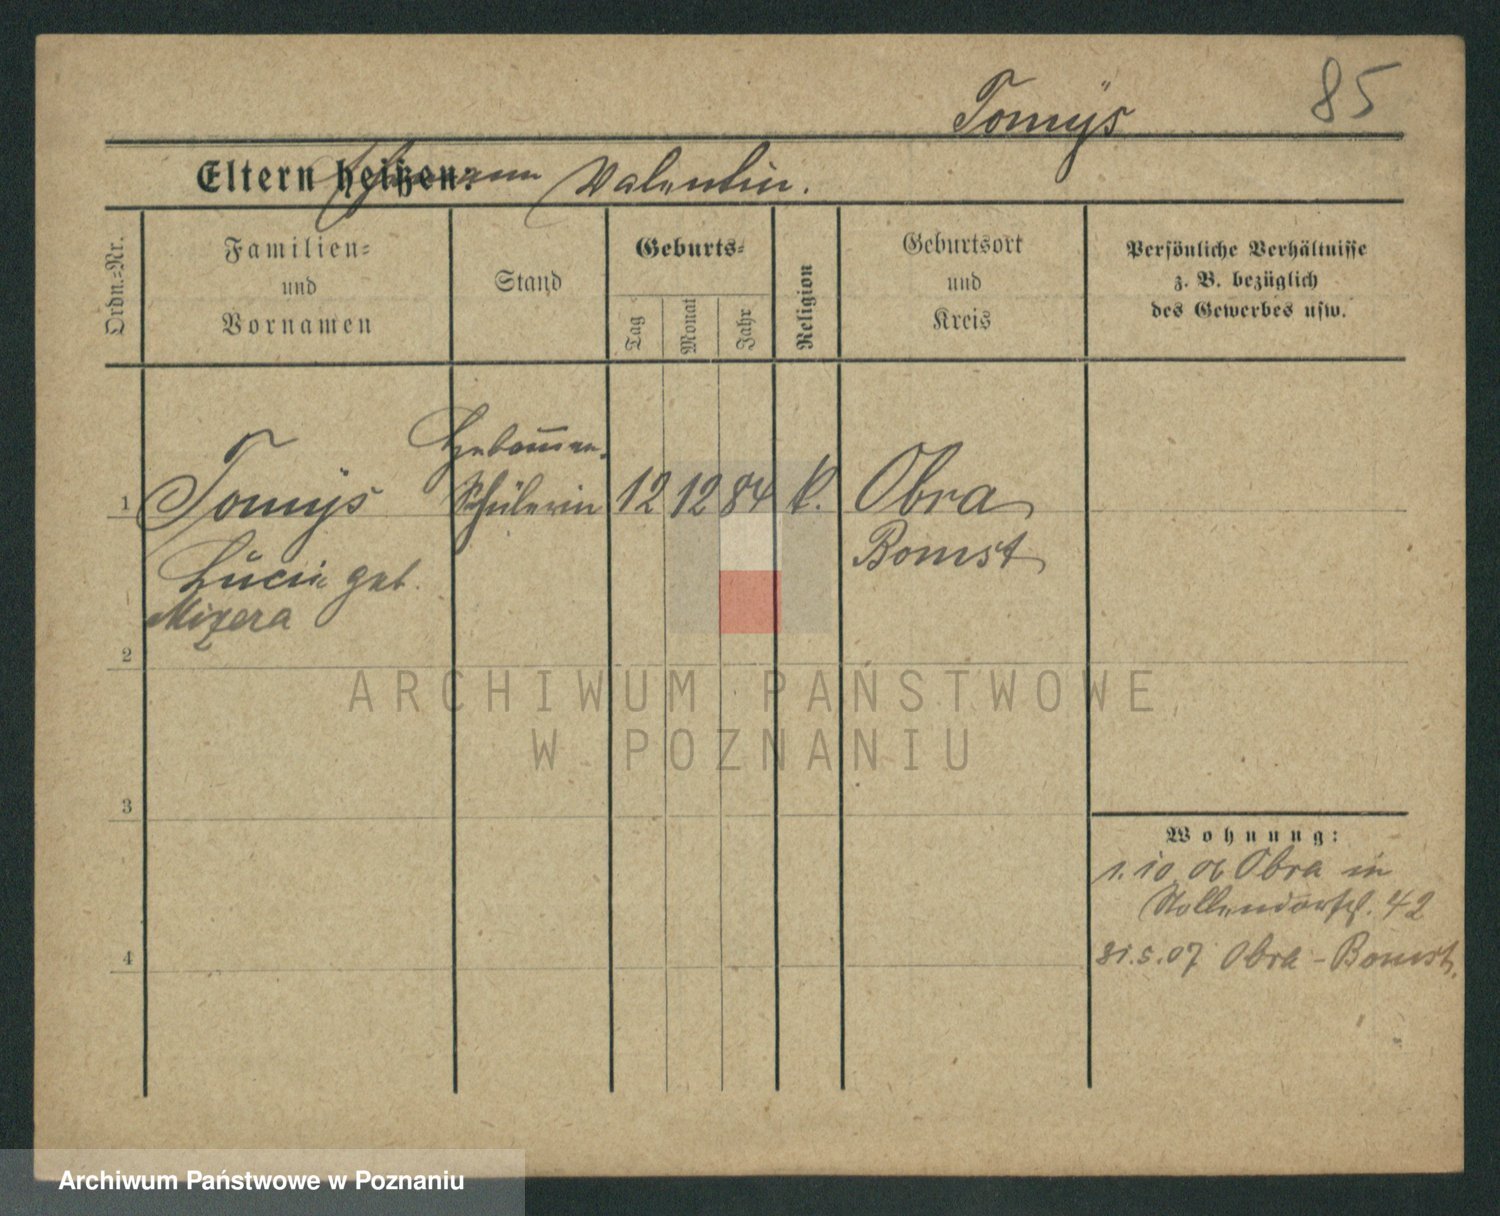 85
Tomÿs
Eltern heißen:
Ehemann Valentin.
Ordn.-Nr.
Familien-
und
Vornamen
Stand
Geburts-
Tag
Monat
Jahr
Religion
Geburtsort
und
Kreis
Persönliche Verhältnisse
z. B. bezüglich
des Gewerbes usw.
Hebammen-
1 Tomÿs Schülerin 12 12 84 k. Obra
Lucie geb. Bomst
Mizera
2
ARCHIWUM PAŃSTWOWE
W POZNANIU
3
Wohnung:
1. 10 06 Obra in
42
4
31.5.07 Obra - Bomst.
Archiwum Państwowe w Poznaniu